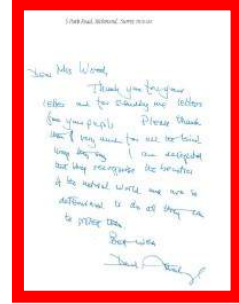 5 Park Road, Richmond, Surrey
Dear Mrs Wood,
Thank you for your
letter and for sending me letters
from your pupils. Please thank
them very much for all the kind
things they say. I am delighted
that they recognise the beauties
of the natural world and are so
determined to do all they can
to protect them.
Best wishes
David